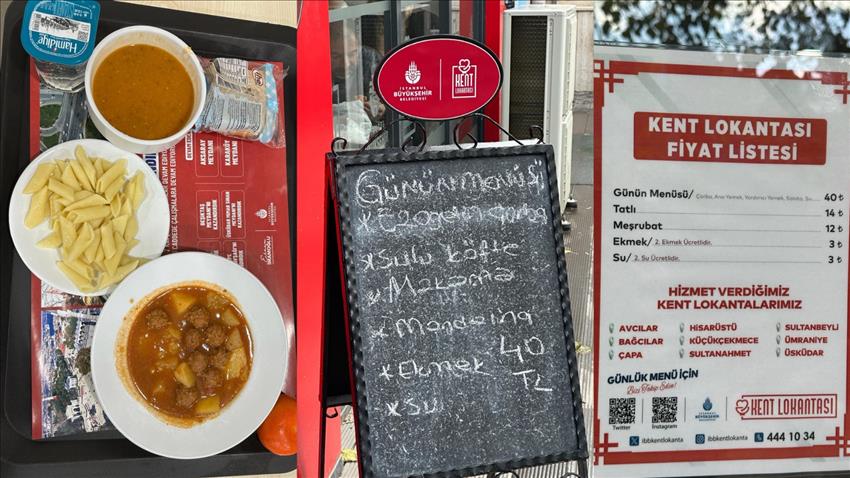 Hamidiye
AKSARAY
MEYDANI
KARAKÖY
MEYDANI
BEŞİKTAŞ
MEYDANI'NI
KAZANDIRDIK
KAZANDIRDIK
İSTANBUL
BÜYÜKŞEHİR
BELEDİYESİ
KENT
LOKANTASI
Günün menüsü
* Ezogelin çorba
* Sulu köfte
* Makarna
* Mandalina
* Ekmek 40
TL
* Su
KENT LOKANTASI
FİYAT LİSTESİ
Günün Menüsü/ Çorba, Ana Yemek, Yardımcı Yemek, Salata, Su 40 ₺
Tatlı 14 ₺
Meşrubat 12 ₺
Ekmek/ 2. Ekmek Ücretlidir. 3 ₺
Su/ 2. Su Ücretlidir. 3 ₺
HİZMET VERDİĞİMİZ
KENT LOKANTALARIMIZ
AVCILAR HİSARÜSTÜ SULTANBEYLİ
BAĞCILAR KÜÇÜKÇEKMECE ÜMRANİYE
ÇAPA SULTANAHMET ÜSKÜDAR
GÜNLÜK MENÜ İÇİN
Bizi Takip Edin!
KENT LOKANTASI
Twitter Instagram
ibbkentlokanta ibbkentlokanta 444 10 34